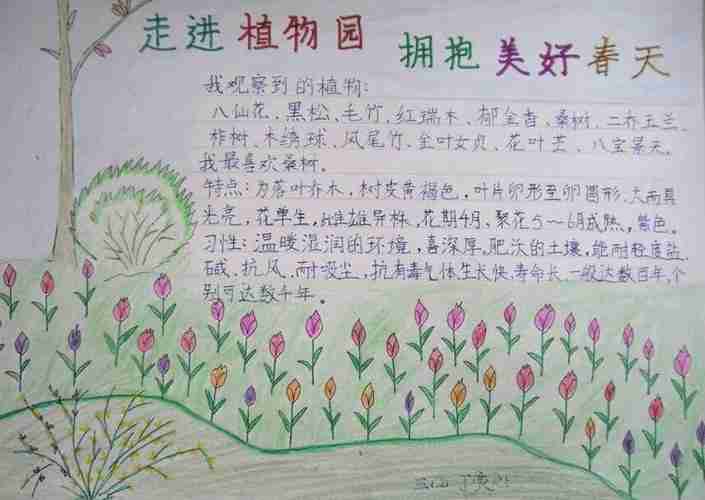 走进植物园 拥抱美好春天
我观察到的植物:
八仙花、黑松、毛竹、红瑞木、郁金香、桑树、二乔玉兰、
柞树、木绣球、凤尾竹、金叶女贞、花叶芒、八宝景天。
我最喜欢桑树。
特点:为落叶乔木,树皮黄褐色,叶片卵形至卵圆形、大而具
光亮,花单生,雌雄异株,花期4月、聚花5~6月成熟,紫色。
习性:温暖湿润的环境,喜深厚、肥沃的土壤,能耐轻度盐
碱、抗风、耐吸尘,抗有毒气体生长快、寿命长、一般达数百年,个
别可达数千年。